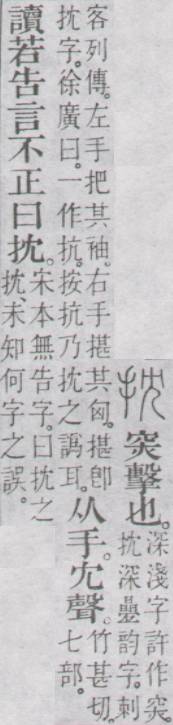 抌
突擊也。
深淺字許作突
抌深疊韵字。刺
客列傳。左手把其袖。右手揕其匈。揕卽
抌字。徐廣曰。一作抗。按抗乃抌之譌耳。
从手。冘聲。
竹甚切。
七部。
讀若告言不正曰抌。
宋本無告字。曰抌之
抌、未知何字之誤。